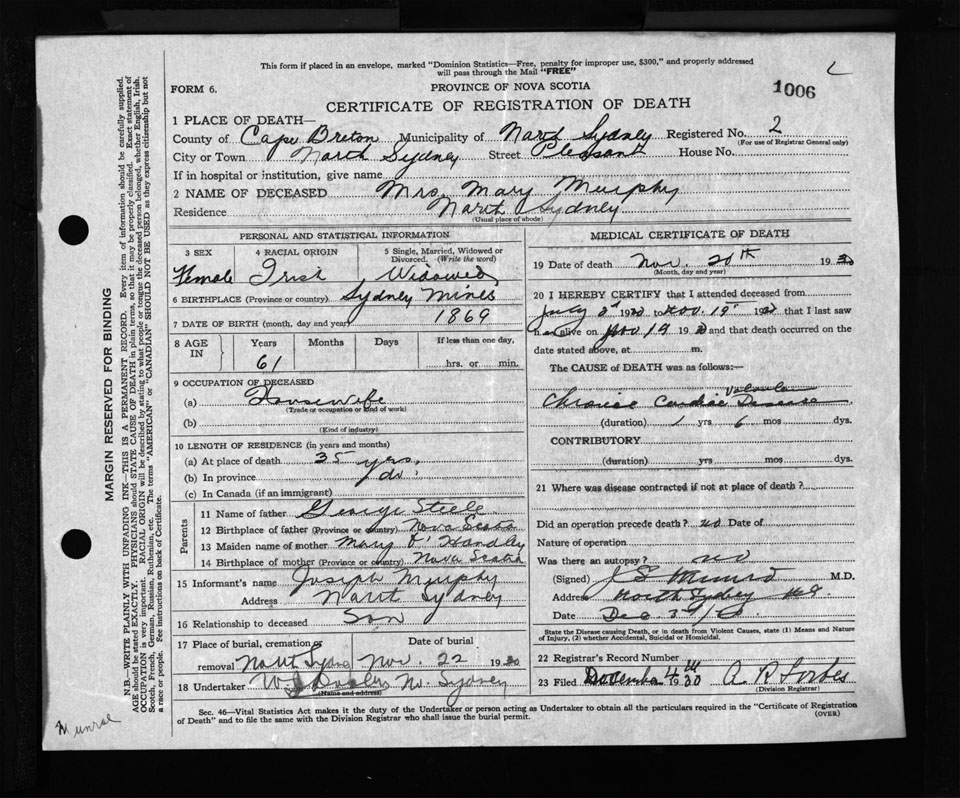 This form if placed in an envelope, marked "Dominion Statistics—Free, penalty for improper use, $300," and properly addressed
will pass through the Mail "FREE"
FORM 6. PROVINCE OF NOVA SCOTIA 1006
CERTIFICATE OF REGISTRATION OF DEATH
1 PLACE OF DEATH—
County of Cape Breton Municipality of North Sydney Registered No. 2
(For use of Registrar General only)
City or Town North Sydney Street Pleasant House No.
If in hospital or institution, give name
2 NAME OF DECEASED Mrs. Mary Murphy
Residence North Sydney
(Usual place of abode)
PERSONAL AND STATISTICAL INFORMATION
3 SEX 4 RACIAL ORIGIN 5 Single, Married, Widowed or Divorced. (Write the word)
Female Irish Widowed
6 BIRTHPLACE (Province or country) Sydney Mines
7 DATE OF BIRTH (month, day and year) 1869
8 AGE IN Years Months Days If less than one day,
61 hrs. or min.
9 OCCUPATION OF DECEASED
(a) Housewife
(Trade or occupation or kind of work)
(b)
(Kind of industry)
10 LENGTH OF RESIDENCE (in years and months)
(a) At place of death 35 yrs.
(b) In province do
(c) In Canada (if an immigrant)
Parents
11 Name of father George Steele
12 Birthplace of father (Province or country) Nova Scotia
13 Maiden name of mother Mary O'Handley
14 Birthplace of mother (Province or country) Nova Scotia
15 Informant's name Joseph Murphy
Address North Sydney
16 Relationship to deceased Son
17 Place of burial, cremation or removal Date of burial
North Sydney Nov. 22 1930
18 Undertaker N. Sydney
(Name and address)
MEDICAL CERTIFICATE OF DEATH
19 Date of death Nov. 20th 1930
(Month, day and year)
20 I HEREBY CERTIFY that I attended deceased from
July 2 1930 to Nov. 19 1930 that I last saw
her alive on Nov 19 1930 and that death occurred on the
date stated above, at m.
The CAUSE of DEATH was as follows:—
Chronic Cardiac Valvular Disease
(duration) 1 yrs 6 mos dys.
CONTRIBUTORY
(duration) yrs mos dys.
21 Where was disease contracted if not at place of death?
Did an operation precede death? no Date of
Nature of operation
Was there an autopsy? no
(Signed) Munro M.D.
Address North Sydney N.S.
Date Dec. 3
State the Disease causing Death, or in death from Violent Causes, state (1) Means and Nature
of Injury, (2) whether Accidental, Suicidal or Homicidal.
22 Registrar's Record Number
23 Filed December 4th 1930 A. R. Forbes
(Division Registrar)
Sec. 46—Vital Statistics Act makes it the duty of the Undertaker or person acting as Undertaker to obtain all the particulars required in the "Certificate of Registration
of Death" and to file the same with the Division Registrar who shall issue the burial permit. (OVER)
MARGIN RESERVED FOR BINDING
N.B.—WRITE PLAINLY WITH UNFADING INK—THIS IS A PERMANENT RECORD. Every item of information should be carefully supplied.
AGE should be stated EXACTLY. PHYSICIANS should STATE CAUSE OF DEATH in plain terms, so that it may be properly classified. Exact statement of
OCCUPATION is very important. RACIAL ORIGIN will be described by stating to what people or tongue the deceased person belonged, whether English, Irish,
Scotch, French, German, Russian, Ruthenian, etc. The terms "AMERICAN" or "CANADIAN" SHOULD NOT BE USED as they express citizenship but not
a race or people. See instructions on back of Certificate.
Munroe